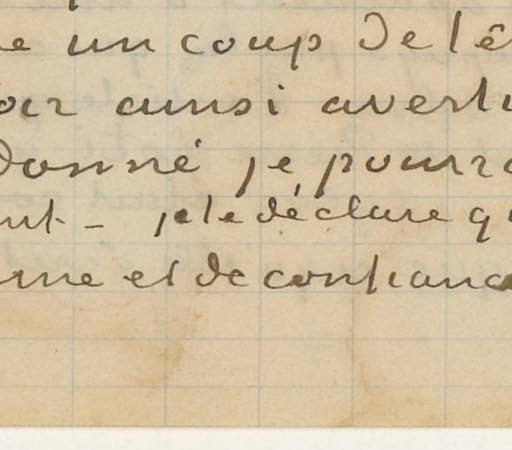 e un coup de tê
oir ainsi averti
donné je pourra
nt - je le déclare q
me et de confianc